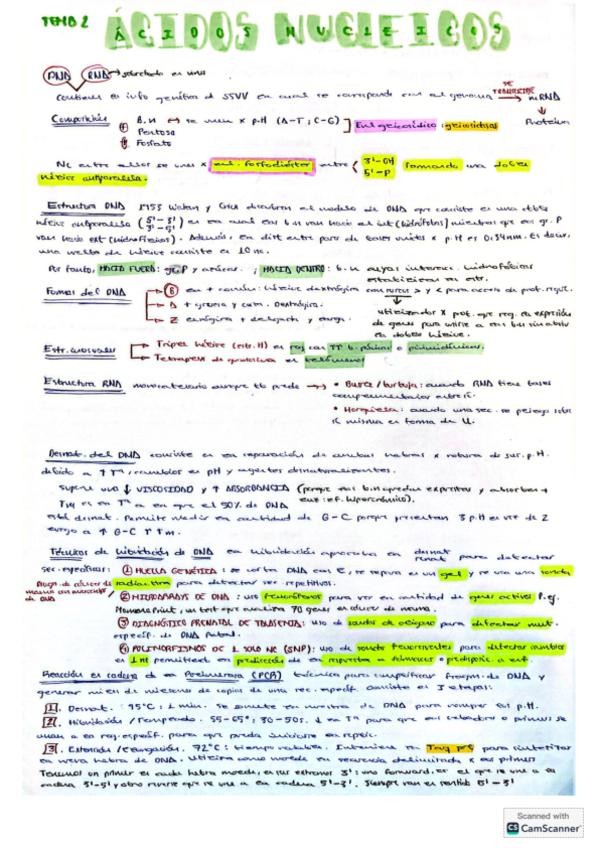 TEMA 2
ÁCIDOS NUCLEICOS
DNA RNA → sobretodo en virus
Contienen la info genética del SSVV en cual se corresponde con el genoma SE TRANSCRIBE → mRNA
↓
Proteína
Composición B.N ↔ se unen x p.H (A-T; C-G) ] Enl. glucosídico
Pentosa
Fosfato
entre ellos se unen x enl. fosfodiéster entre 3'-OH 5'-P formando una doble
hélice antiparalela.
Estructura DNA 1953 Watson y Crick el modelo de DNA que consiste en una doble
hélice antiparalela (5'-3' 3'-5') en la cual las b.n van hacia el int (hidrófobas) mientras que los gr. P
van hacia ext (hidrofílicos). Además, la dist entre par de bases unidas x p.H es 0,34nm. Es decir,
una vuelta de hélice consiste en 10 nt.
Por tanto, HACIA FUERA: gr. P y azúcar. ; HACIA DENTRO: b.n cuyas interacc. hidrofóbicas
estabilizan la estr.
Formas del DNA B la + común: hélice dextrógira con surcos > y < para acceso de prot. regul.
A + gruesa y corta. Dextrógira. utilizados x prot. que reg. la expresión
Z levógira + delgada y larga. de genes para unirse a las bases sin abrir
la doble hélice.
Estr. inusuales Triple hélice (estr. H) en reg con b. púricas o pirimidínicas.
Tetraplexo de guanosina en telómeros
Estructura RNA monocatenario aunque tb puede → • Bucle/burbuja: cuando RNA tiene bases
complementarias entre sí.
• Horquilla: cuando una sec. se pliega sobre
sí misma en forma de U.
Desnat. del DNA consiste en la separación de ambas hebras x rotura de sus p.H.
debido a ↑ Tª, cambios en pH y agentes desnaturalizantes.
Supone una ↓ VISCOSIDAD y ↑ ABSORBANCIA (porque las b.n quedan expuestas y absorben +
luz: ef. hipercrómico).
Tm es la Tª a la que el 50% de DNA
está desnat. Permite medir la cantidad de G-C porque presentan 3 p.H en vez de 2
luego a ↑ G-C ↑ Tm.
Técnicas de hibridación de DNA la hibridación aprovecha la desnat renat para detectar
sec. específicas: ① HUELLA GENÉTICA: se corta DNA con E, se separa en un gel y se usa una sonda
radiactiva para detectar sec. repetitivas.
② MICROARRAYS DE DNA: usa fluoróforos para ver la cantidad de genes activos P.ej.
MammaPrint, un test que analiza 70 genes en cáncer de mama.
③ DIAGNÓSTICO PRENATAL DE TALASEMIA: uso de sondas de oligos para detectar mut.
específ. de DNA fetal.
④ POLIMORFISMOS DE 1 SOLO NC (SNP): uso de sondas fluorescentes para detectar cambios
en 1 nt permitiendo la predicción de la respuesta a fármacos o predisposic. a enf.
Reacción en cadena de la Polimerasa (PCR) técnica para amplificar fragm. de DNA y
generar miles de millones de copias de una sec. específ. Consiste en 3 etapas:
1. Desnat. : 95°C : 1 min. Se somete la muestra de DNA para romper los p.H.
2. Hibridación / Templado. 55-65°: 30-50s. ↓ la Tª para que los cebadores o primers se
unan a la reg. específ. para que pueda iniciarse la replic.
3. Extensión / Elongación. 72°C : tiempo variable. Interviene la Taq pol para sintetizar
la nueva hebra de DNA. Utiliza como molde la secuencia delimitada x los primers
Tenemos un primer en cada hebra molde, en sus extremos 3': uno forward, es el que se une a la
cadena 3'-5' y otro reverse que se une a la cadena 5'-3'. Siempre van en sentido 5'-3'
Scanned with
CS CamScanner